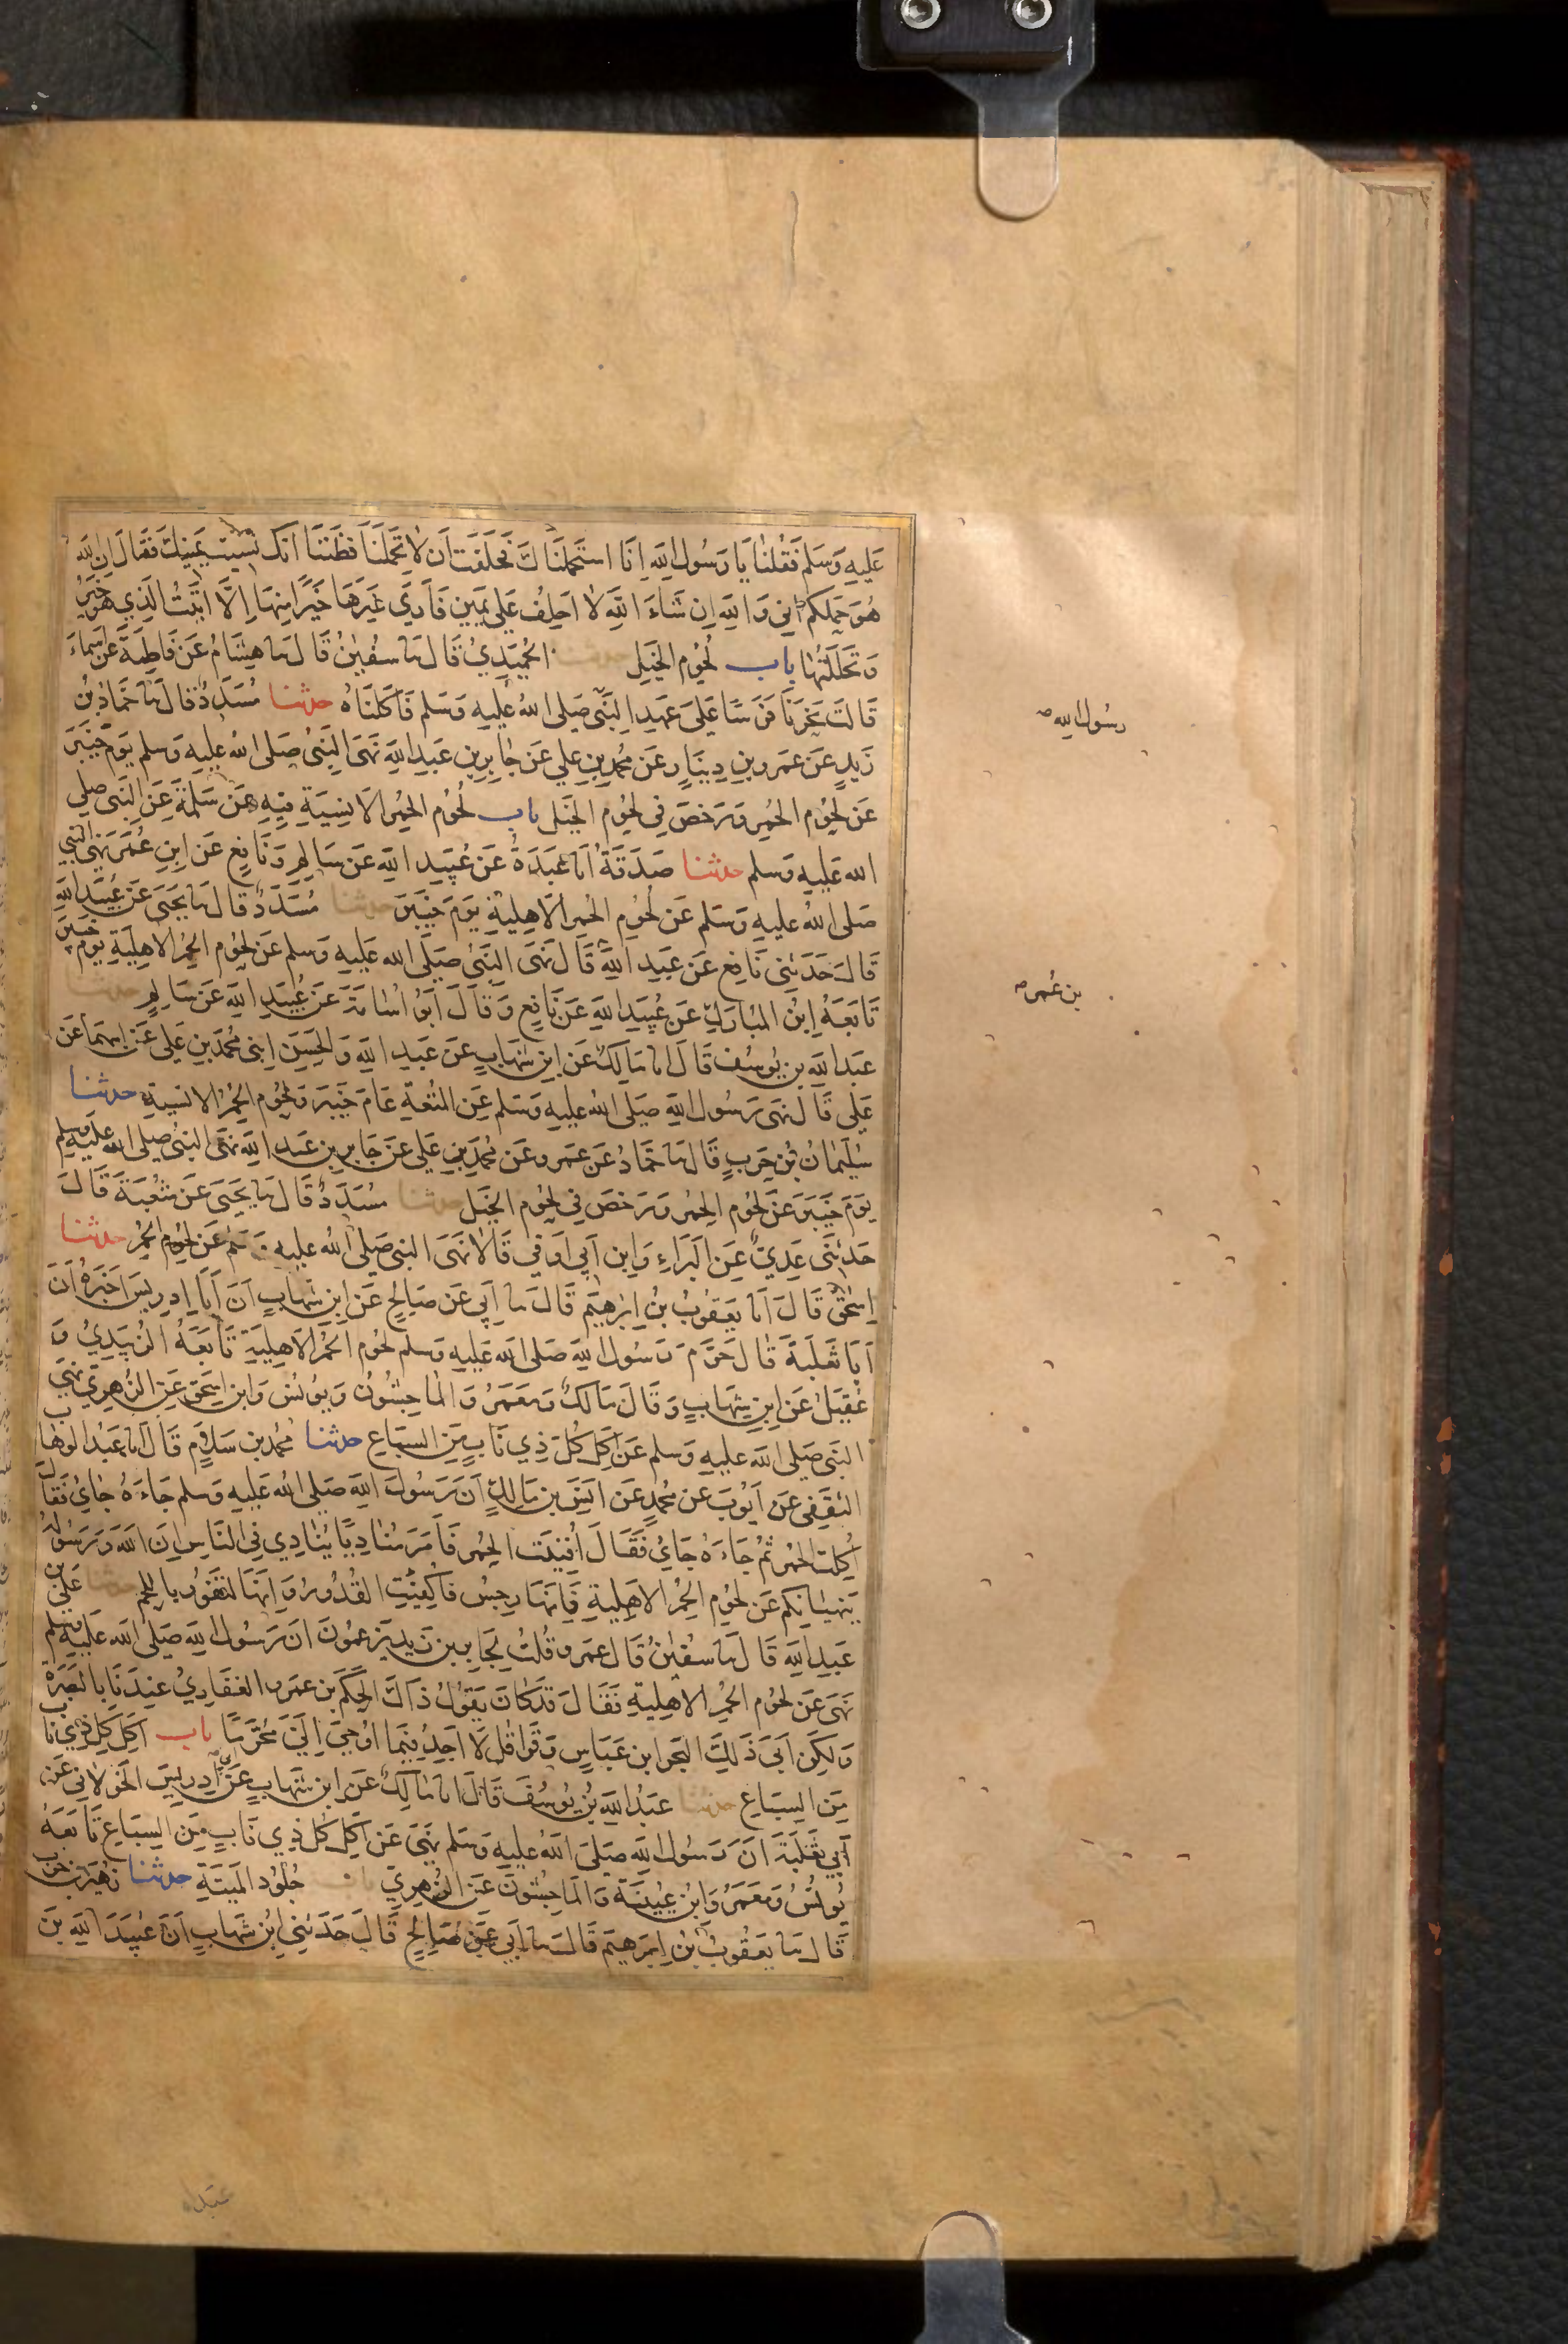 عَلَيهِ وَسَلم فَقُلنَا يَا رَسُول اللهِ اِنَا استَحمَلنَاكَ فَحَلَفتَ اَن لا تَحمِلَنَا فظَنَنَّا انَكَ نَسِيتَ يَمِينَكَ فَقَالَ اِن الله
هُوَ حَمَلَكُم اِنِي وَاللهِ اِن شَاءَ اللهُ لا احلِفُ عَلى يَمِينٍ فَارَى غَيرَهَا خَيرًا مِنهَا اِلَّا اتَيتُ الَذِي هُو خَيرٌ
وَتَحَلَّلتُهَا باب لحُوم الخَيلِ حدثنا الحُمَيدِيُ قَالَ نا سفيٰنُ قَالَ نا هِشَامُ عَن فَاطِمَةَ عَن اسَماءَ
قَالَت نَحَرنَا فَرَسًا عَلى عَهدِ النَبّي صَلى اللهُ عَليهِ وَسَلم فَاكَلنَاهُ حدثنا مُسَدَدٌ قالَ نا حَمادُ بنُ
زَيدٍ عَن عَمرو بنِ دِينَارٍ عَن مُحمد بنِ عَلي عَن جَابِرِ بنِ عَبدِ اللهِ نَهَى النَبيُ صَلى الله عليهِ وسلم يَومَ خَيبَر
عَن لحُوم الحُمُرِ وَرَخصَ فِي لحُوم الخَيل باب لحُوم الحُمُر الانسِيَةِ فِيهِ عَن سَلَمَةَ عَن النَبي صلى
الله عَليهِ وَسلم حدثنا صَدَقَةُ انا عَبدَةُ عَن عُبَيد اللهِ عَن سَالِمٍ وَنَافِعٍ عَن ابنِ عُمَرَ نهَى النبي
صَلى اللهُ عليهِ وسَلم عَن لحُوم الحُمر الاَهلِيةِ يَومَ خَيبَرَ حدثنا مُسَدَدٌ قالَ نا يَحيَى عَن عُبَيدِ الله
قَالَ حَدَثَنِي نَافِع عَن عَبدِ اللهِ قَالَ نَهَى النَبيُ صَلَى الله عَليهِ وَسلم عَن لحُوم الحُمُر الاهلِيَةِ يَومَ خَيبَرَ
تَابَعَهُ ابنُ المُبَارَكِ عَن عُبَيدِ اللهِ عَن نَافِعٍ وَقَالَ ابَوُ اُسَامَةَ عَن عُبَيدِ اللهِ عَن سَالِمٍ حدثنا
عَبدُ اللهِ بن يُوسُف قَالَ انا مَالِكٌ عَن ابنِ شهَابٍ عَن عَبدِ اللهِ وَالحَسَنِ ابنَي مُحَمَدِ بنِ عَلي عَن ابِيهِمَا عَن
عَلِي قَالَ نَهى رَسُول اللهِ صَلى اللهُ عَليهِ وَسَلم عَنِ المُتعَةِ عَامَ خَيبَرَ وَلحُوم الحُمُر الانسِيةِ حدثنا
سُلَيمَانُ بنُ حَربٍ قَالَ نا حَمادُ عَن عَمرو عَن مُحَمَدِ بنِ عَلي عَن جَابِرِ بنِ عَبدِ اللهِ نهَى النَبيُ صلى الله عَليه وَسلم
يَومَ خَيبَرَ عَن لحُوم الحُمر وَرَخصَ فِي لحُوم الخَيل حدثنا مُسَدَدٌ قَالَ نا يَحيَى عَن شُعبَةَ قَالَ
حَدثَنَي عَدِيٌ عَنِ البَرَاءِ وَابنِ اَبِي اَوفى قَالا نَهَى النبي صَلى اللهُ عليهِ وَسَلم عَن لحُوم الحُمُر حدثنا
اِسحٰقُ قَالَ انا يَعقُوبُ بنُ ابرٰهيم قَالَ نا اَبِي عَن صَالِحٍ عَن ابنِ شهَابٍ اَن اَبَا ادرِيسَ اَخبَرَهُ اَن
اَبَا ثَعلَبَةَ قَالَ حَرَّمَ رَسُول اللهِ صَلى الله عَليهِ وَسلم لحُوم الحُمُر الاَهلِيَةِ تَابَعَهُ الزُبَيدِيُ وَ
عُقَيلٌ عَن ابنِ شِهَابٍ وَقَالَ مَالكٌ وَمعمَرُ وَالمَاجِشُونُ وَيُونُس وَابن اِسحٰقَ عَن الزُهرِيِّ نهَى
النَبي صَلى الله عليهِ وسلم عَن اَكل كُل ذِي نَابٍ مِن السِبَاع حدثنا مُحمد بن سَلامٍ قَالَ انا عَبدُ الوَهاب
الثَقَفِي عَن اَيُوبَ عَن مُحمدٍ عَن انَس بن مَالكٍ اَن رَسُولَ اللهِ صَلى اللهُ عَليهِ وسلم جَاءَهُ جَاءٍ فَقَالَ
اُكِلَت الحُمُر ثُم جَاءَهُ جَاءٍ فَقَالَ اُفنِيَت الحُمر فَاَمَرَ مُنَادِيًا يُنَادِي فِي النَاسِ اِنَ اللهَ وَرَسُولَهُ
يَنهيَانِكُم عَن لحُوم الحُمُر الاَهلِيةِ فَاِنهَا رِجسٌ فَاكفِئَتِ القُدُورُ وَانهَا لتَفُورُ بِاللحم حدثنا عَليُّ بن
عَبدِ اللهِ قَالَ نا سُفيٰنُ قَالَ عَمرو قُلتُ لجَابِر بن زَيدٍ يَزعمُونَ انَ رَسُول اللهِ صَلى الله عَليهِ وسلم
نهَى عَن لحُوم الحُمر الاهلِيةِ فَقَالَ قَدكَانَ يَقُولُ ذَاكَ الحَكَم بن عَمرو الغفَارِيُ عِندَنَا بِالبَصرَة
وَلكِن اَبَى ذَلِكَ البَحر ابن عَبَاسٍ وَقَرَا قُل لَا اَجِدُ فِيمَا اُوحِيَ اِلَيَّ مُحَرَّمًا باب اَكل كل ذِي نَاب
مِن السِبَاعِ حدثنا عَبدُ اللهِ بنُ يُوسُفَ قَالَ انا مَالِكٌ عَن ابن شهَابٍ عَن اَبِي اِدرِيسَ الخَولانِي عَن
اَبِي ثَعلَبَةَ انَ رَسُول اللهِ صَلى اللهُ عليهِ وسَلم نهَى عَن اكل كُل ذِي نَابٍ مِن السِبَاع تَابَعَهُ
يُونُسُ وَمَعمَرُ وَابنُ عُيَينَةَ وَالمَاجِشُونَ عَن الزُهرِيّ باب جُلُود المَيتَةِ حدثنا زُهَير بن حَرب
قَالَ نا يَعقُوبُ بنُ اِبرَهيم قَالَ نا اَبِي عَن صَالِحٍ قَالَ حَدَثَنِي ابنُ شِهَابٍ اَنَ عُبَيدَ اللهِ بن
رسُول الله صـ
بن عُمر صـ
عَبدالله